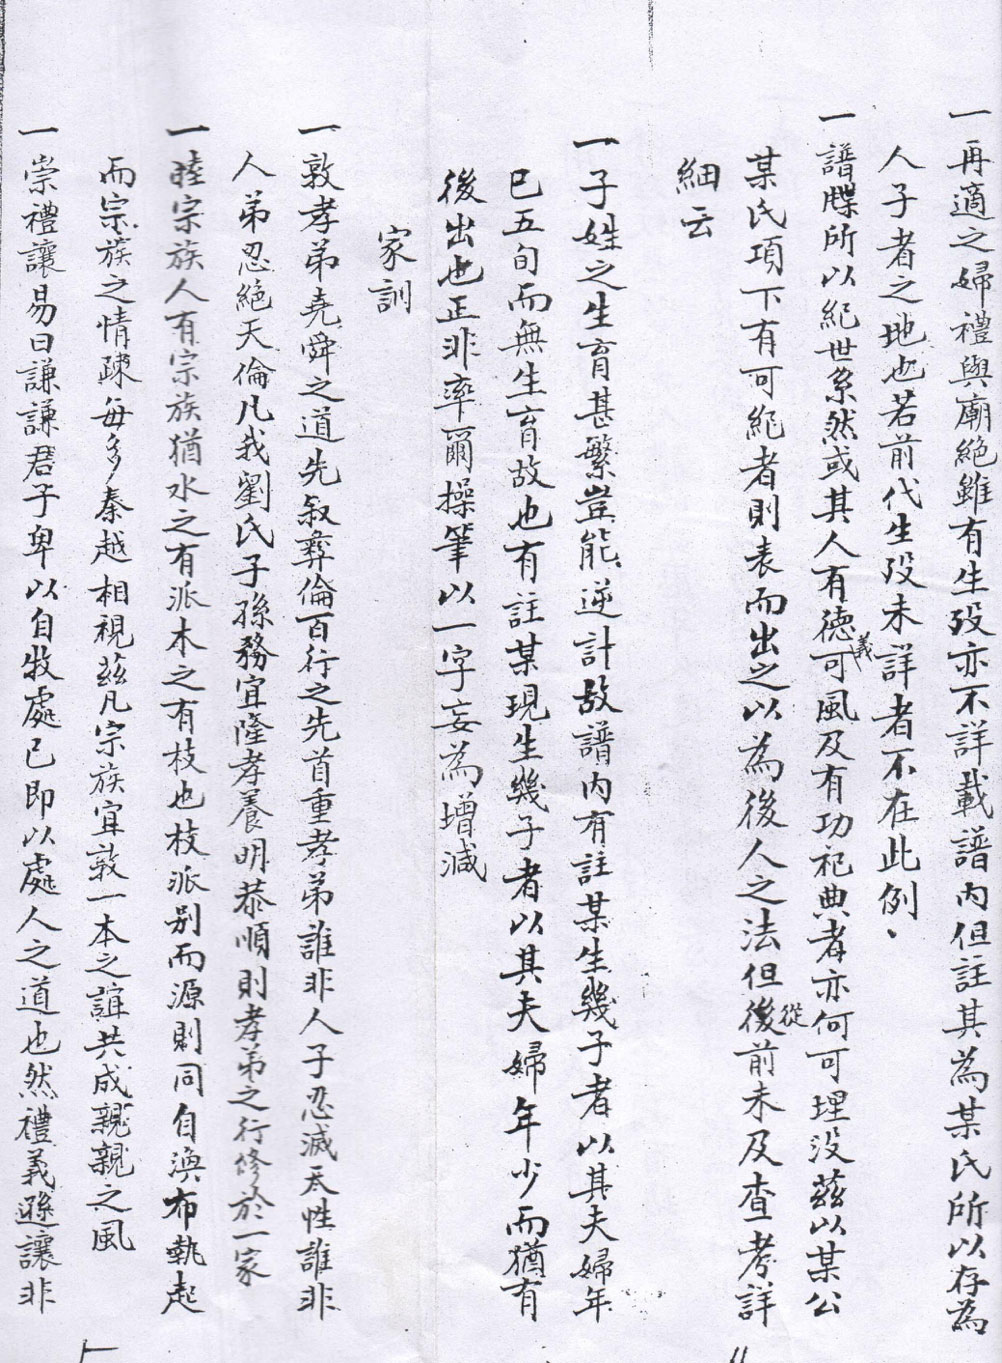 一再適之婦禮與廟絕雖有生歿亦不詳載譜內但註其為某氏所以存為
人子者之地也若前代生歿未詳者不在此例、
一譜牒所以紀世系然或其人有德義可風及有功祀典者亦何可埋没茲以某公
某氏項下有可紀者則表而出之以為後人之法但從前未及查考詳
細云
一子姓之生育甚繁豈能逆計故譜內有註某生幾子者以其夫婦年
已五旬而無生育故也有註某現生幾子者以其夫婦年少而猶有
後出也正非率爾操筆以一字妄為增減
家訓
一敦孝弟堯舜之道先叙彝倫百行之先首重孝弟誰非人子忍滅天性誰非
人弟忍絕天倫凡我劉氏子孫務宜隆孝養明恭順則孝弟之行修於一家
一睦宗族人有宗族猶水之有派木之有枝也枝派别而源則同自渙布執起
而宗族之情踈每多秦越相視茲凡宗族宜敦一本之誼共成親親之風
一崇禮讓易曰謙謙君子卑以自牧處已即以處人之道也然禮義遜讓非